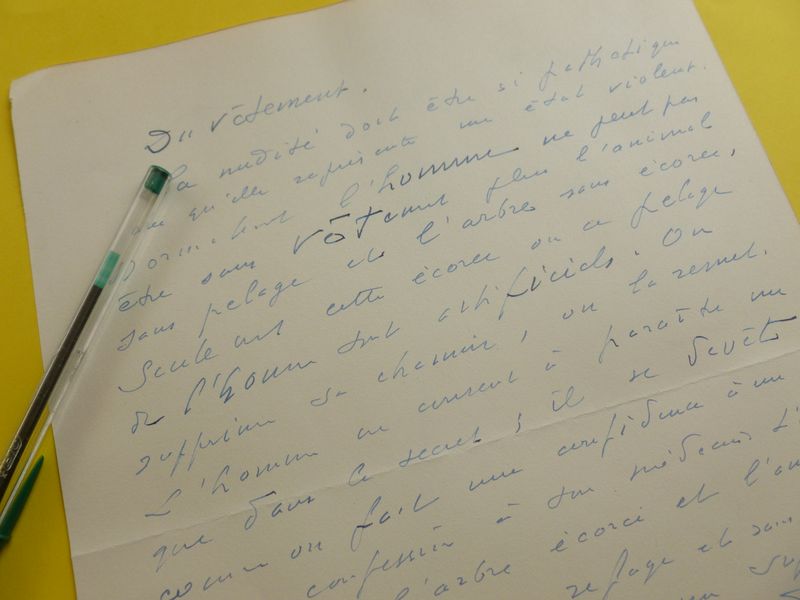 Du vêtement.
La nudité doit être si pathétique
qu'elle représente un état violent.
Normalement l'homme ne peut pas
être sans vêtement plus l'animal
sans pelage et l'arbre sans écorce,
Seulement cette écorce ou ce pelage
de l'homme sont artificiels. On
supprime sa chemise, on la remet.
L'homme ne consent à paraître nu
que dans le secret ; il se dévêt
comme on fait une confidence à un
confession à son médecin. L'
l'arbre écorcé et l'an
pelage et san